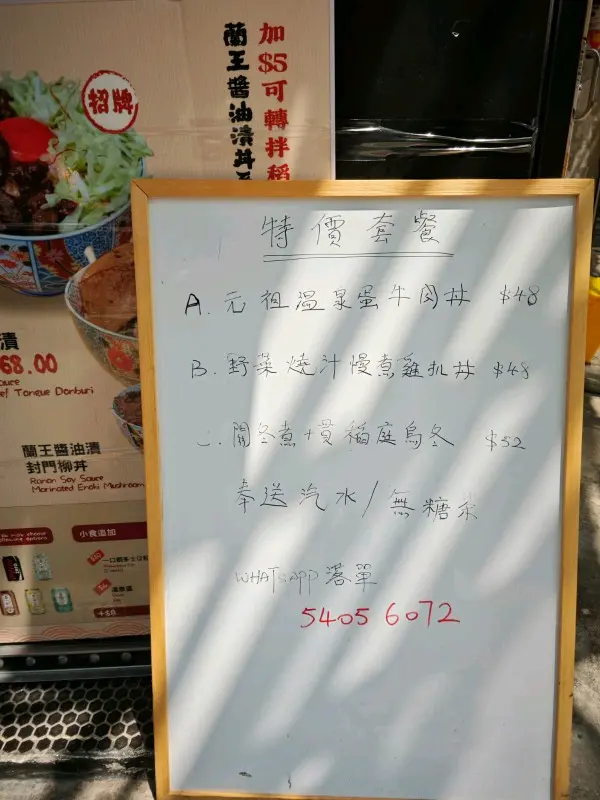 加$5可轉拌稻
蘭王醬油漬丼
招牌
漬
68.00
auce
ef Tongue Donburi
蘭王醬油漬
封門柳丼
Ranon Soy Sauce
Marinated Enoki Mushroom
小食追加
+$8
特價套餐
A. 元祖溫泉蛋牛肉丼 $48
B. 野菜燒汁慢煮雞扒丼 $48
C. 關冬煮+貫稲庭烏冬 $52
奉送汽水/無糖茶
WHATSAPP 落單
5405 6072